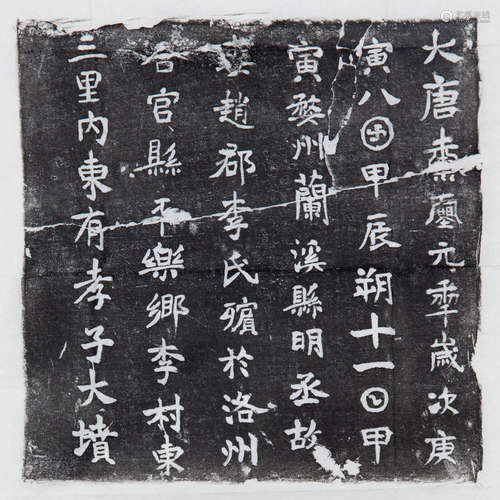 大唐𡕀𡔈元𠡦歲次庚
寅八囝甲辰朔十一𡆠甲
寅婺州蘭溪縣明丞故
妻趙郡李氏殯於洛州
合官縣平樂鄉李村東
三里內東有孝子大墳